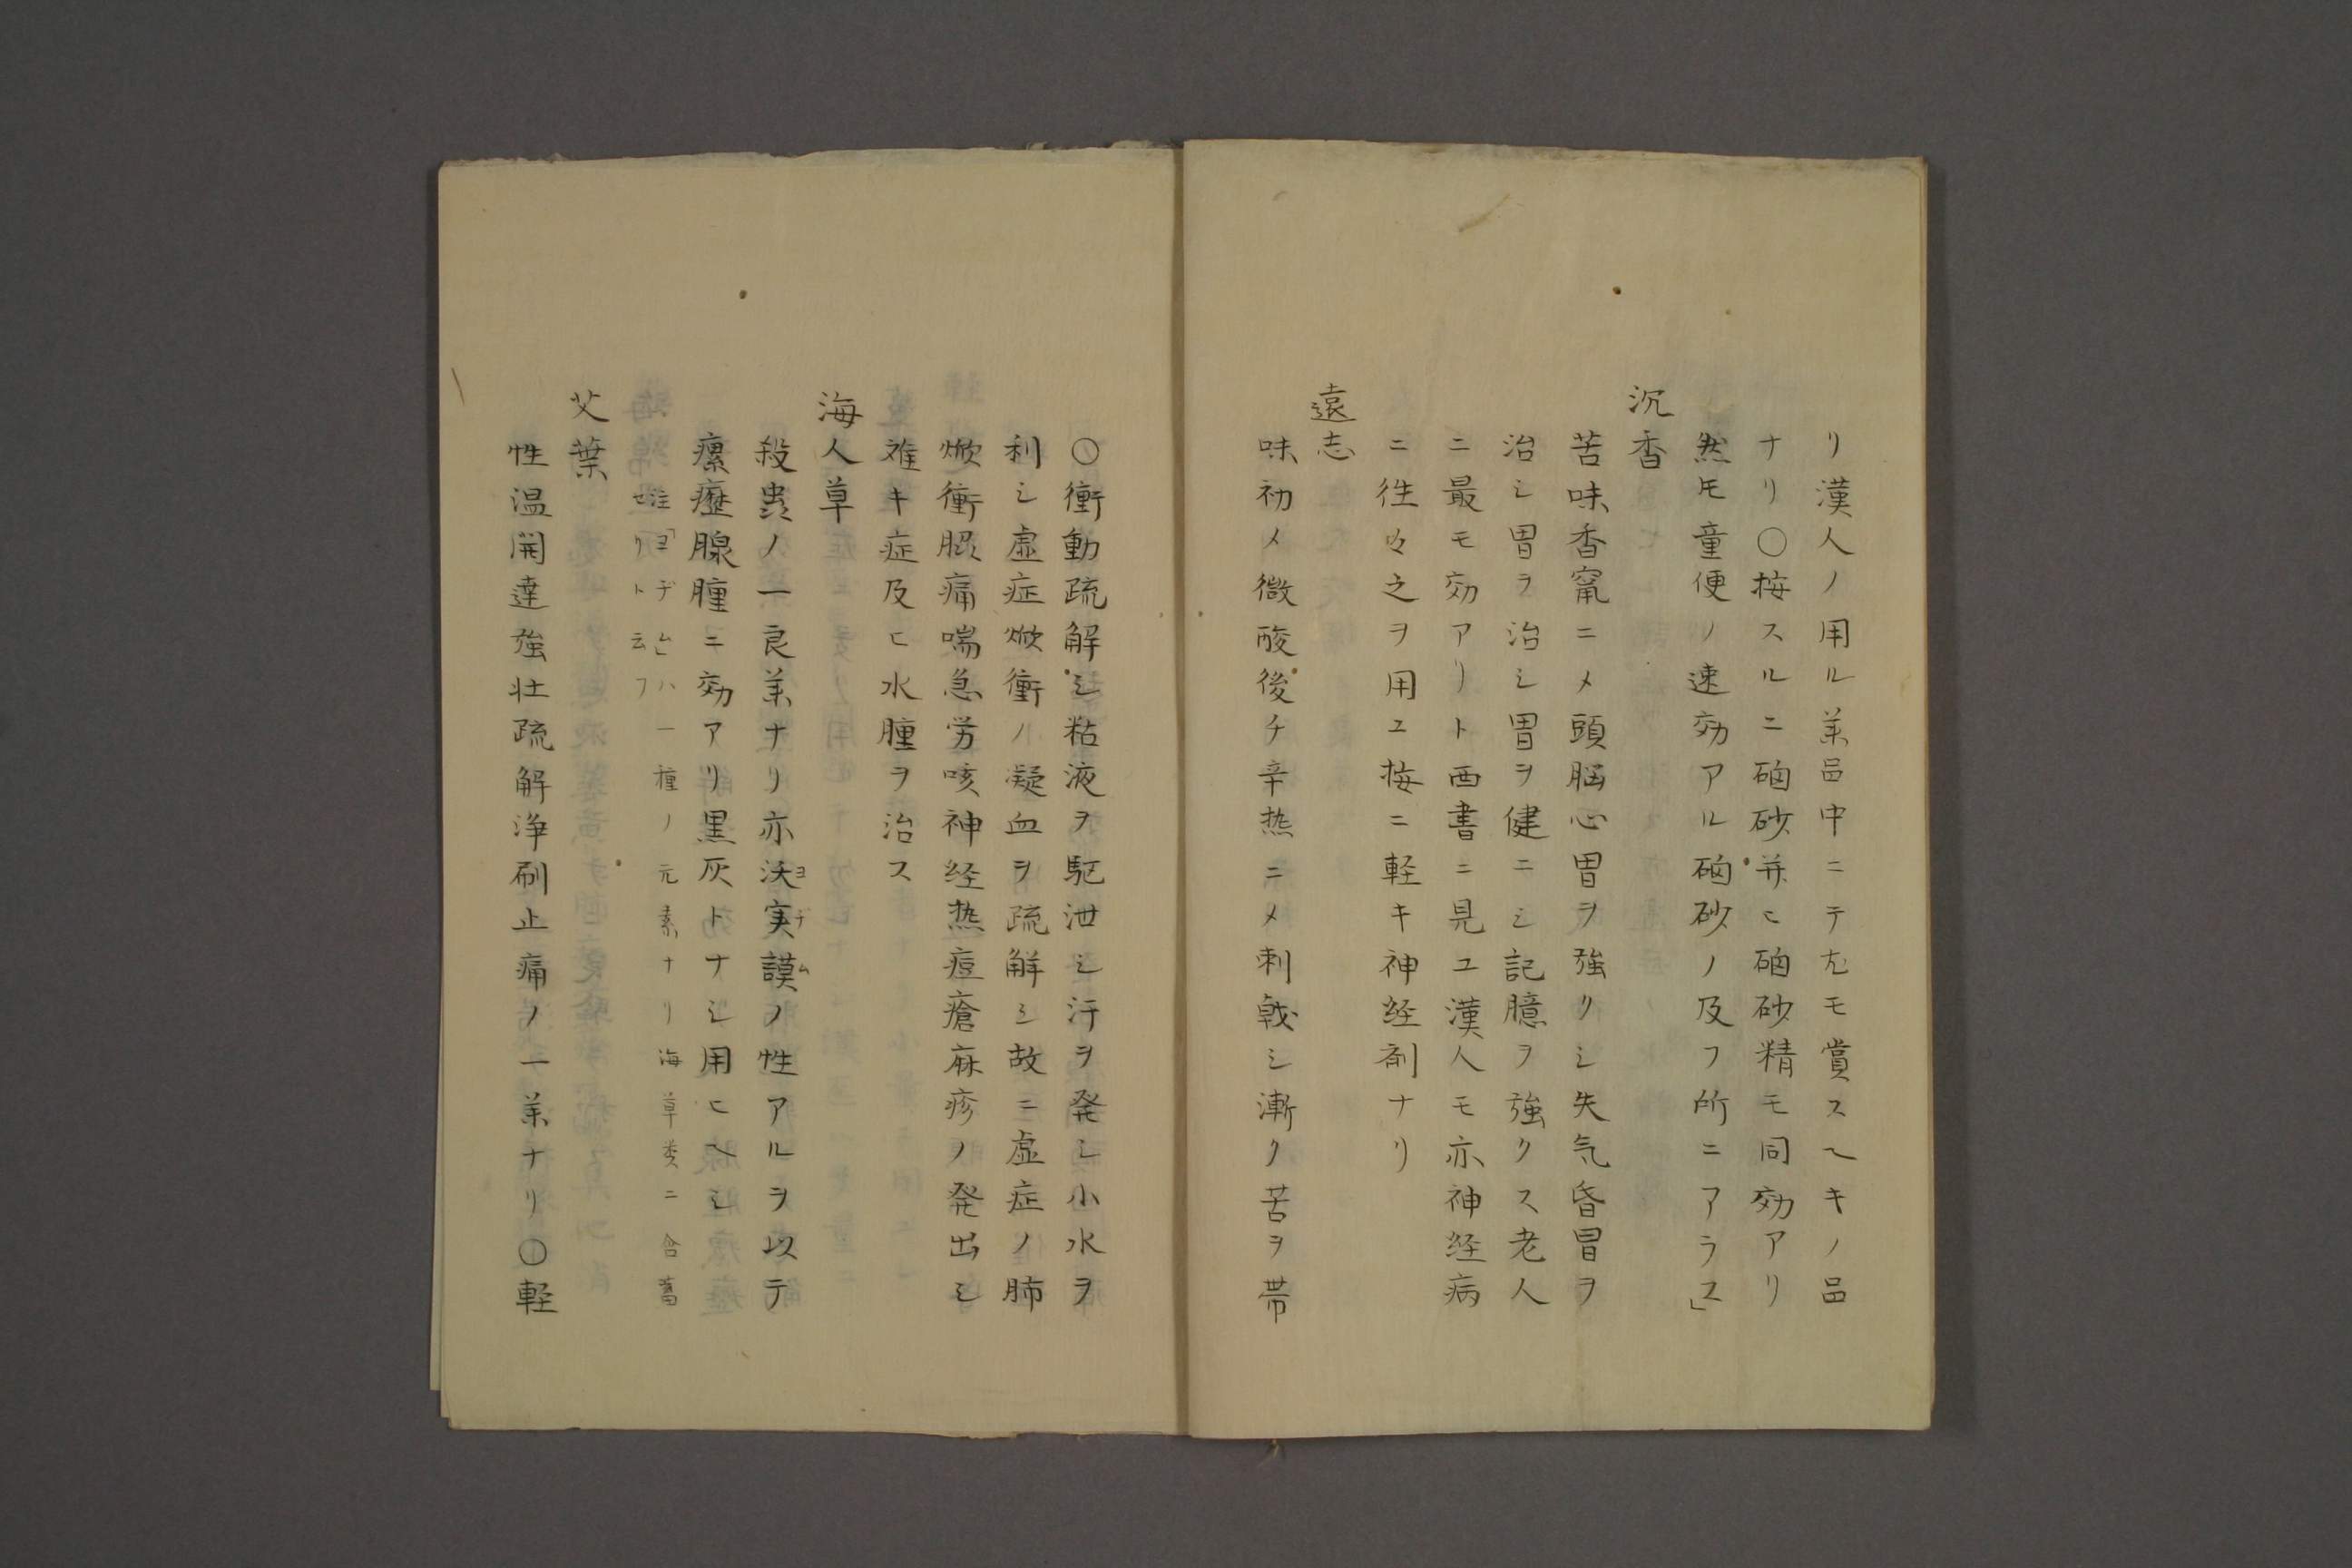 リ漢人ノ用ル薬品中ニテ尤モ賞スヘキノ品
ナリ〇按スルニ硇砂并ヒ硇砂精モ同効アリ
然𪜈童便ノ速効アル硇砂ノ及フ所ニアラス」
沉香
苦味香竄ニメ頭脳心胃ヲ強クシ失気昏冒ヲ
治シ胃ヲ治シ胃ヲ健ニシ記臆ヲ強クス老人
ニ最モ効アリト西書ニ見ユ漢人モ亦神経病
ニ往々之ヲ用ユ按ニ軽キ神経剤ナリ
遠志
味初メ微酸後チ辛热ニメ刺戟シ漸ク苦ヲ帯
〇衝動疏解シ粘液ヲ駆泄シ汗ヲ発シ小水ヲ
利シ虚症焮衝ノ凝血ヲ疏解シ故ニ虚症ノ肺
焮衝脹痛喘急労咳神経热痘瘡麻疹ノ発出シ
难キ症及ヒ水腫ヲ治ス
海人草
殺虫ノ一良薬ナリ亦沃実謨ノ性アルヲ以テ
ヨヂム
瘰癧腺腫ニ効アリ黒灰トナシ用ヒヘシ
注「ヨヂム」ハ一種ノ元素ナリ海草类ニ含蓄
セリト云フ
艾葉
性温開達強壮疏解浄刷止痛ノ一薬ナリ〇軽